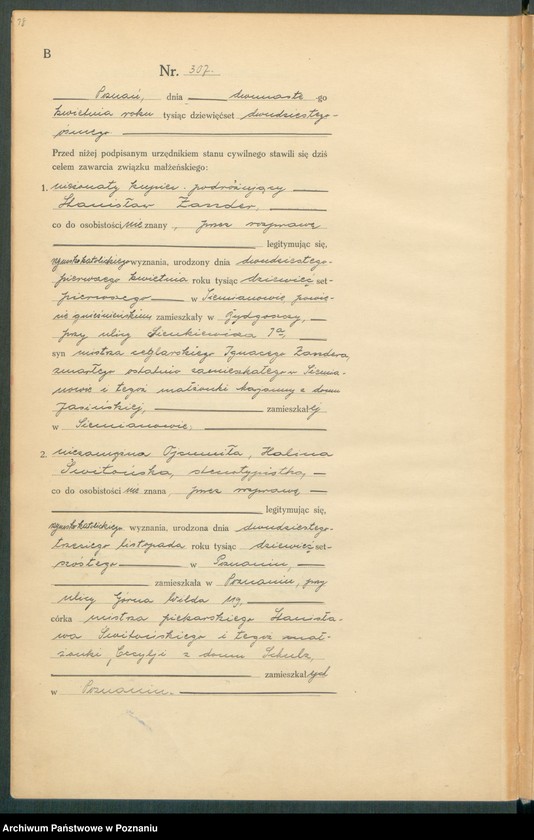 78
B
Nr. 307.
Poznań, dnia dwunaste -go
kwietnia roku tysiąc dziewięćset dwudziestego-
ósmego
Przed niżej podpisanym urzędnikiem stanu cywilnego stawili się dziś
celem zawarcia związku małżeńskiego:
1. nieżonaty kupiec podróżujący
Stanisław Zander,
co do osobistości nie znany, przez rozprawę
legitymując się,
rzymskokatolickiego wyznania, urodzony dnia dwudziestego-
pierwszego kwietnia roku tysiąc dziewięć set-
pierwszego w Siemianowie powie-
cie gnieźnieńskim zamieszkały w Bydgoszczy,
przy ulicy Sienkiewicza 7a,
syn mistrza ceglarskiego Ignacego Zandera,
zmarłego ostatnio zamieszkałego w Siemia-
nowie i tegoż małżonki z domu
Jasińskiej, zamieszkałej
w Siemianowie.
2. niezamężna Bogumiła, Halina
Świtońska, stenotypistka,
co do osobistości nie znana, przez rozprawę
legitymując się,
rzymskokatolickiego wyznania, urodzona dnia dwudziestego-
trzeciego listopada roku tysiąc dziewięć set-
szóstego w Poznaniu,
zamieszkała w Poznaniu, przy
ulicy Górna Wilda 119,
córka mistrza piekarskiego Stanisła-
wa Świtońskiego i tegoż mał-
żonki Cecylji z domu Schulz,
zamieszkałych
w Poznaniu.
Archiwum Państwowe w Poznaniu